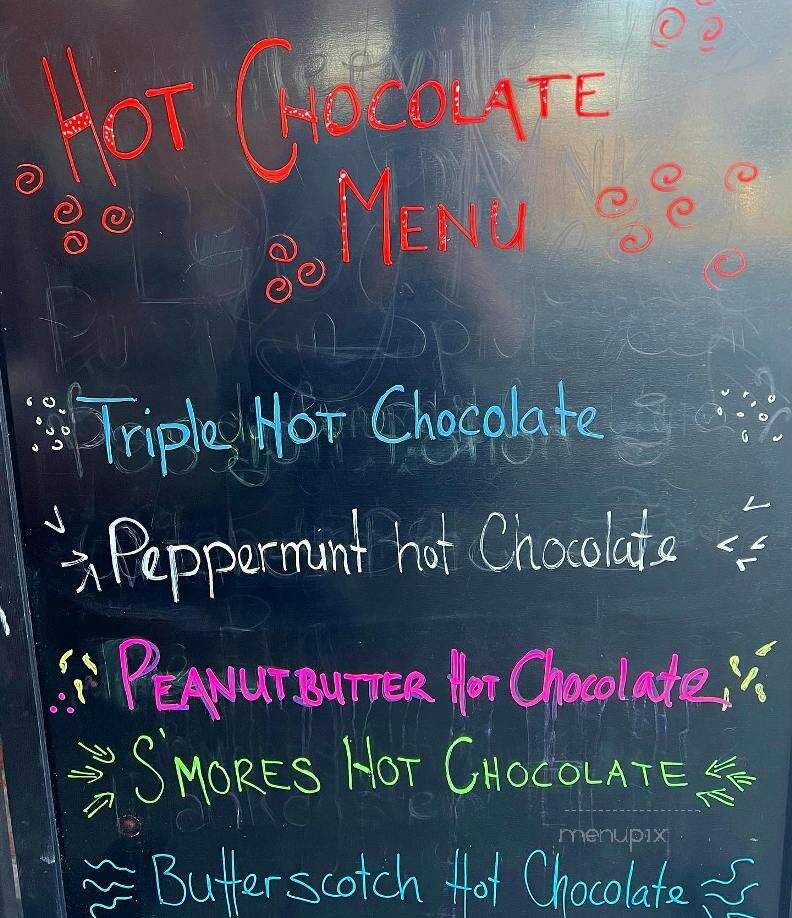 HOT CHOCOLATE
MENU
Triple HOT Chocolate
Peppermint hot Chocolate
PEANUTBUTTER HOT Chocolate
S'MORES HOT CHOCOLATE
menupix
Butterscotch Hot Chocolate